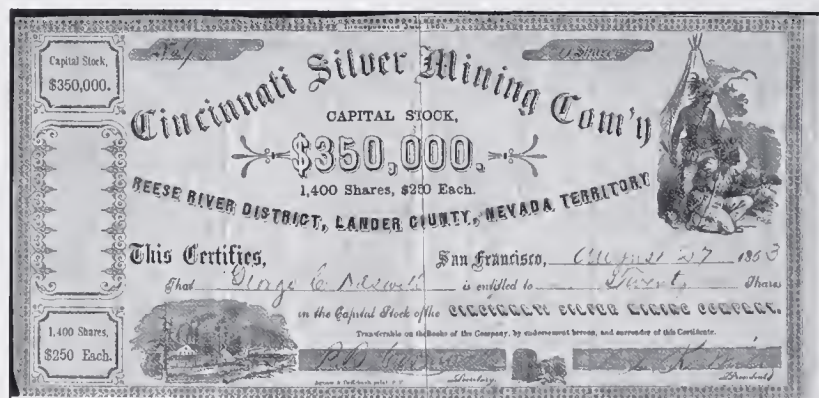 Incorporated
Capital Stock,
$350,000.
No
Shares
Cincinnati Silver Mining Com'y
CAPITAL STOCK,
$350,000.
1,400 Shares, $250 Each.
REESE RIVER DISTRICT, LANDER COUNTY, NEVADA TERRITORY
This Certifies,
San Francisco, August 27 1863
That George is entitled to Twenty Shares
in the Capital Stock of the CINCINNATI SILVER MINING COMPANY.
Transferable on the Books of the Company, by endorsement hereon, and surrender of this Certificate.
1,400 Shares,
$250 Each.
Secretary.
President